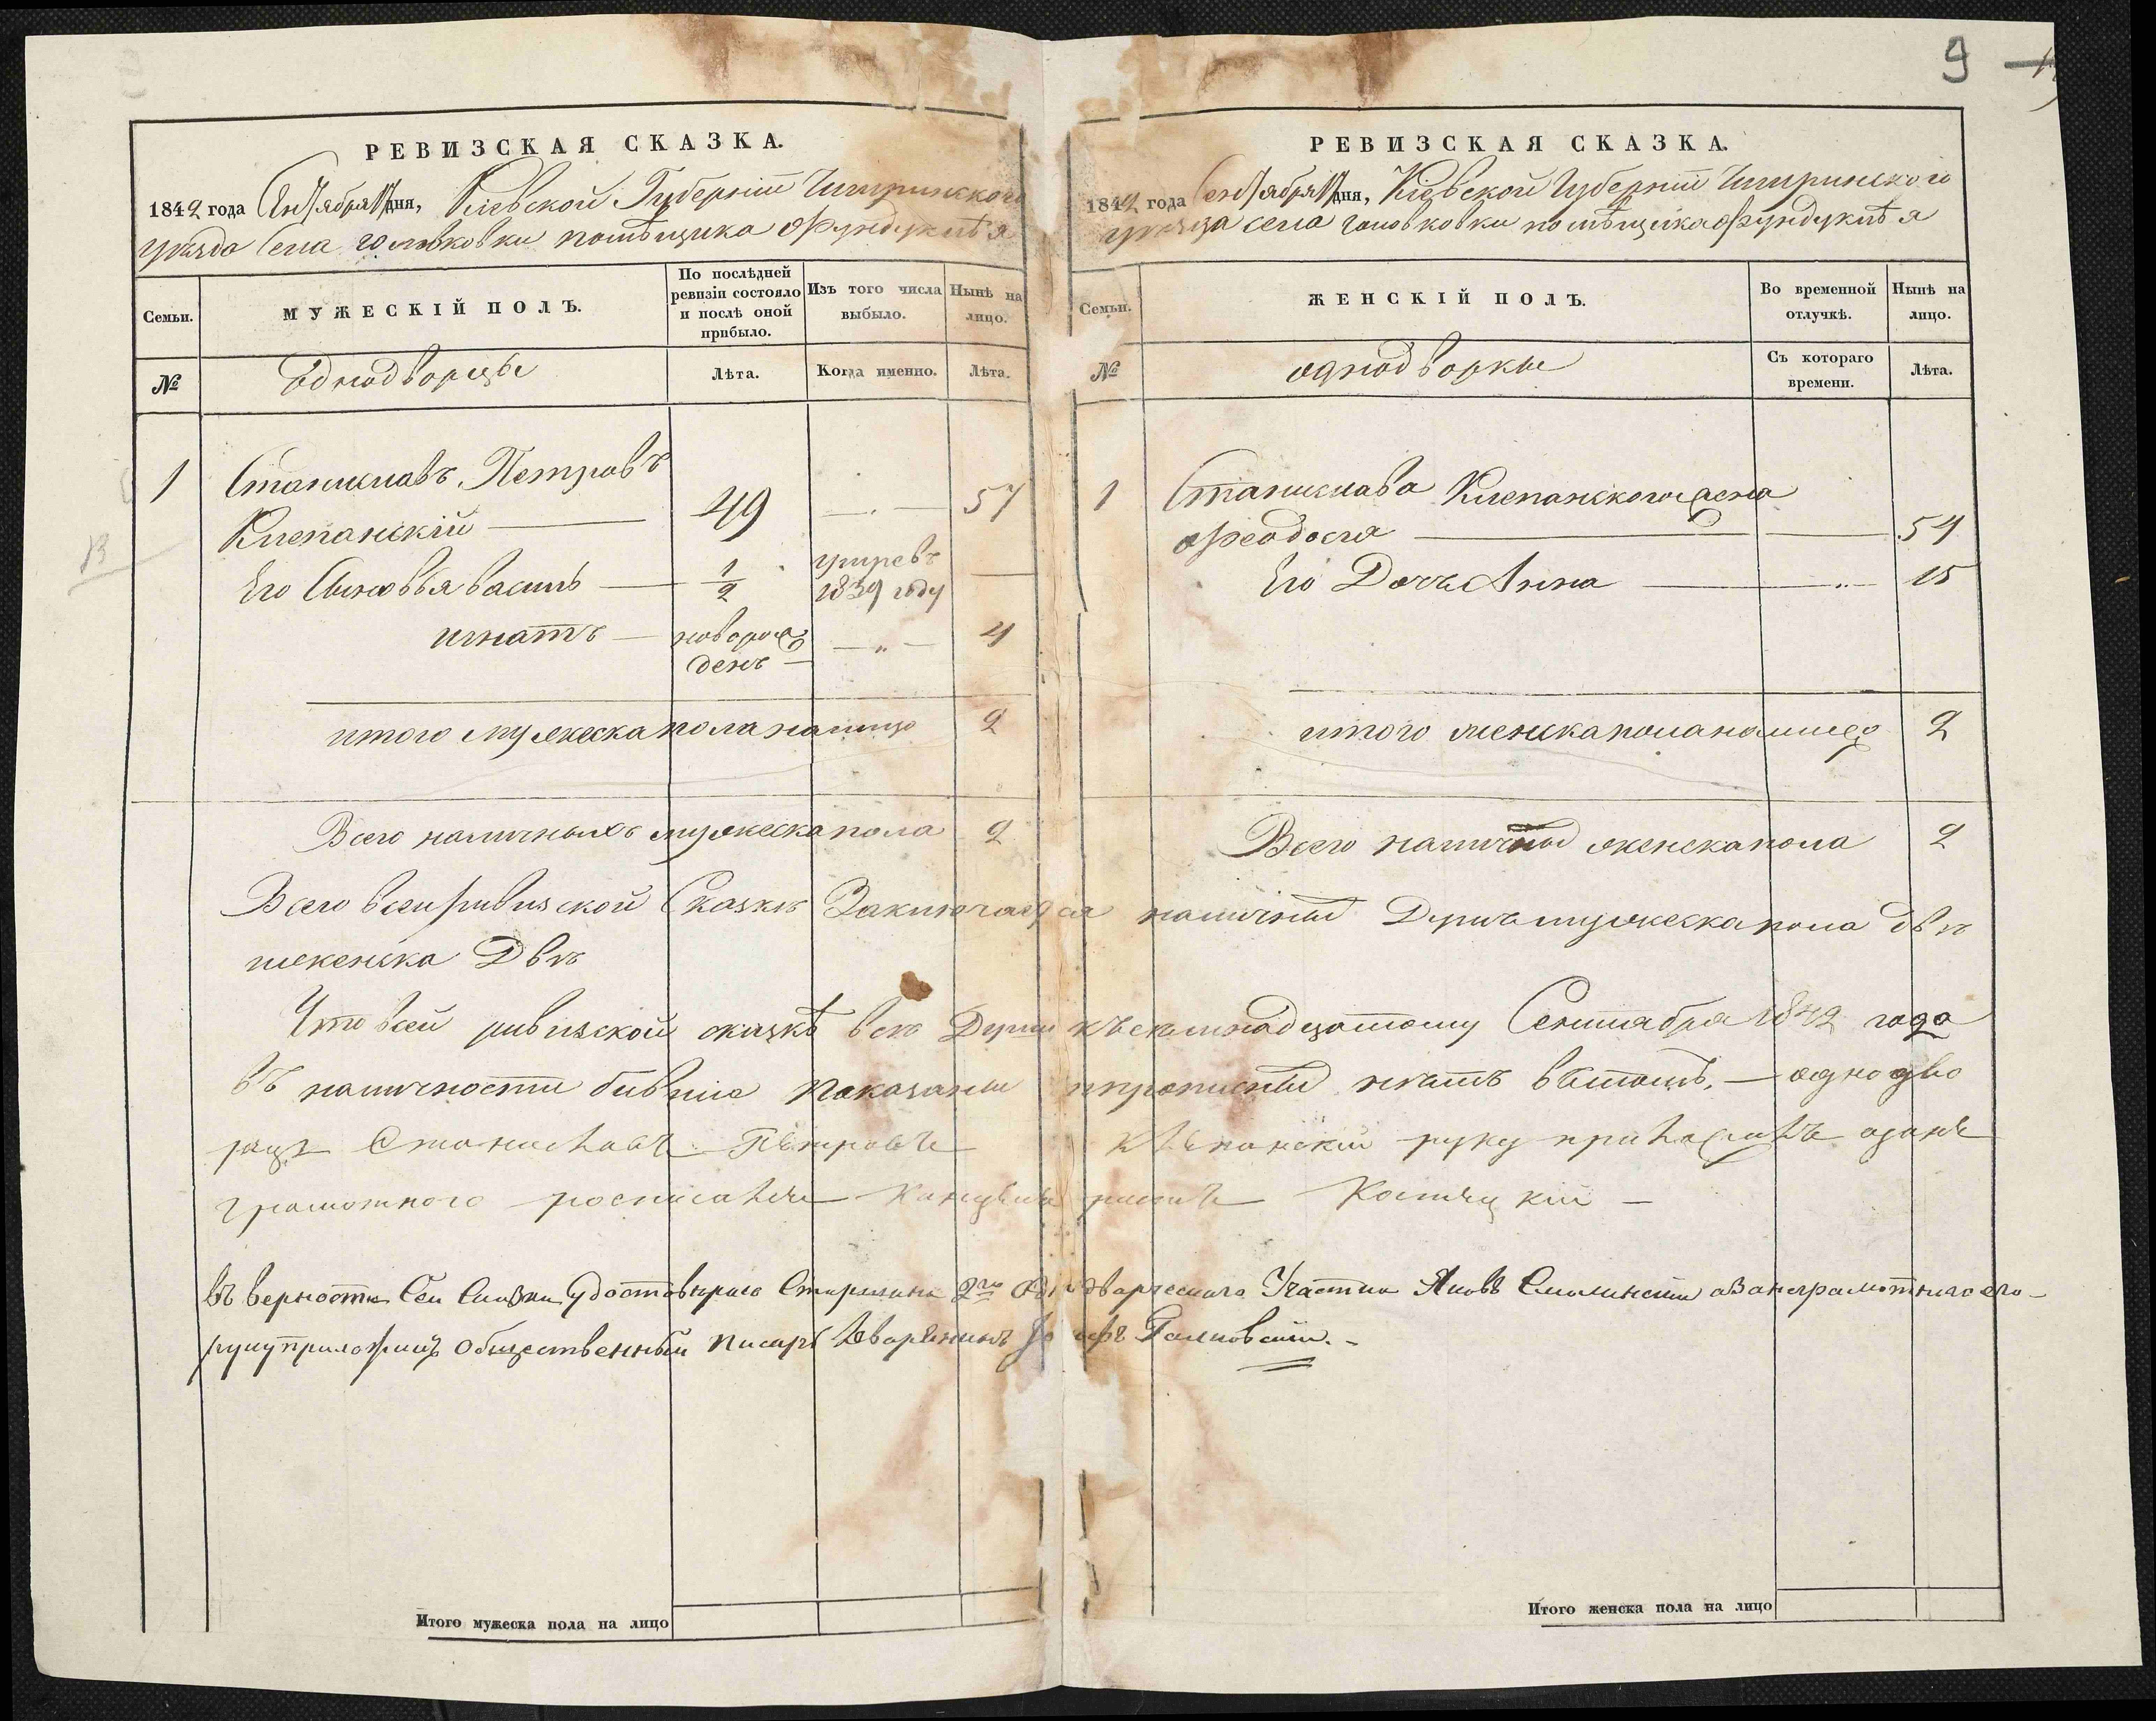 9
РЕВИЗСКАЯ СКАЗКА.
1842 года Сентября 17 дня, Кіевской Губерніи Чигиринского
уѣзда Села головковки помѣщика Фундуклѣя
Семьи.
МУЖЕСКІЙ ПОЛЪ.
По послѣдней ревизіи состояло и послѣ оной прибыло.
Изъ того числа выбыло.
Нынѣ на лицо.
№
Однодворцы
Лѣта.
Когда именно.
Лѣта.
1 Станиславъ Петровъ
Клепанскій 49 57
Его Сыновья василь 1/2 умревъ 1839 году
игнатъ новорож денъ 4
итого мужеска пола налицо 2
Всего наличныхъ мужеска пола 2
РЕВИЗСКАЯ СКАЗКА.
1842 года Сентября 17 дня, Кіевской Губерніи Чигиринского
уѣзда села головковки помѣщика Фундуклѣя
Семьи.
ЖЕНСКІЙ ПОЛЪ.
Во временной отлучкѣ.
Нынѣ на лицо.
№
однодворки
Съ котораго времени.
Лѣта.
1 Станислава Клепанского жена
Феодосия 54
Его Дочь Анна 15
итого женска пола налицо 2
Всего женска пола 2
Всего в сей ривизской Сказке Заключается наличных Душъ мужеска пола двѣ
женска Двѣ
Что в сей ривизской сказкѣ все Души къ семнадцатому Сентября 1842 года
въ наличности бывшие показаны и прописных нѣтъ в томъ, — однодво
рецъ Станиславъ Петровъ Клепанский руку приложилъ а за не
грамотного росписался Канцеляристъ
въ верности Сей Сказки Удостоверяю Старшина 2го Однодварческого Участка Яковъ Смолинский а За неграмотного его
руку приложилъ Общественный Писарь Дворянинъ
Итого мужеска пола на лицо
Итого женска пола на лицо